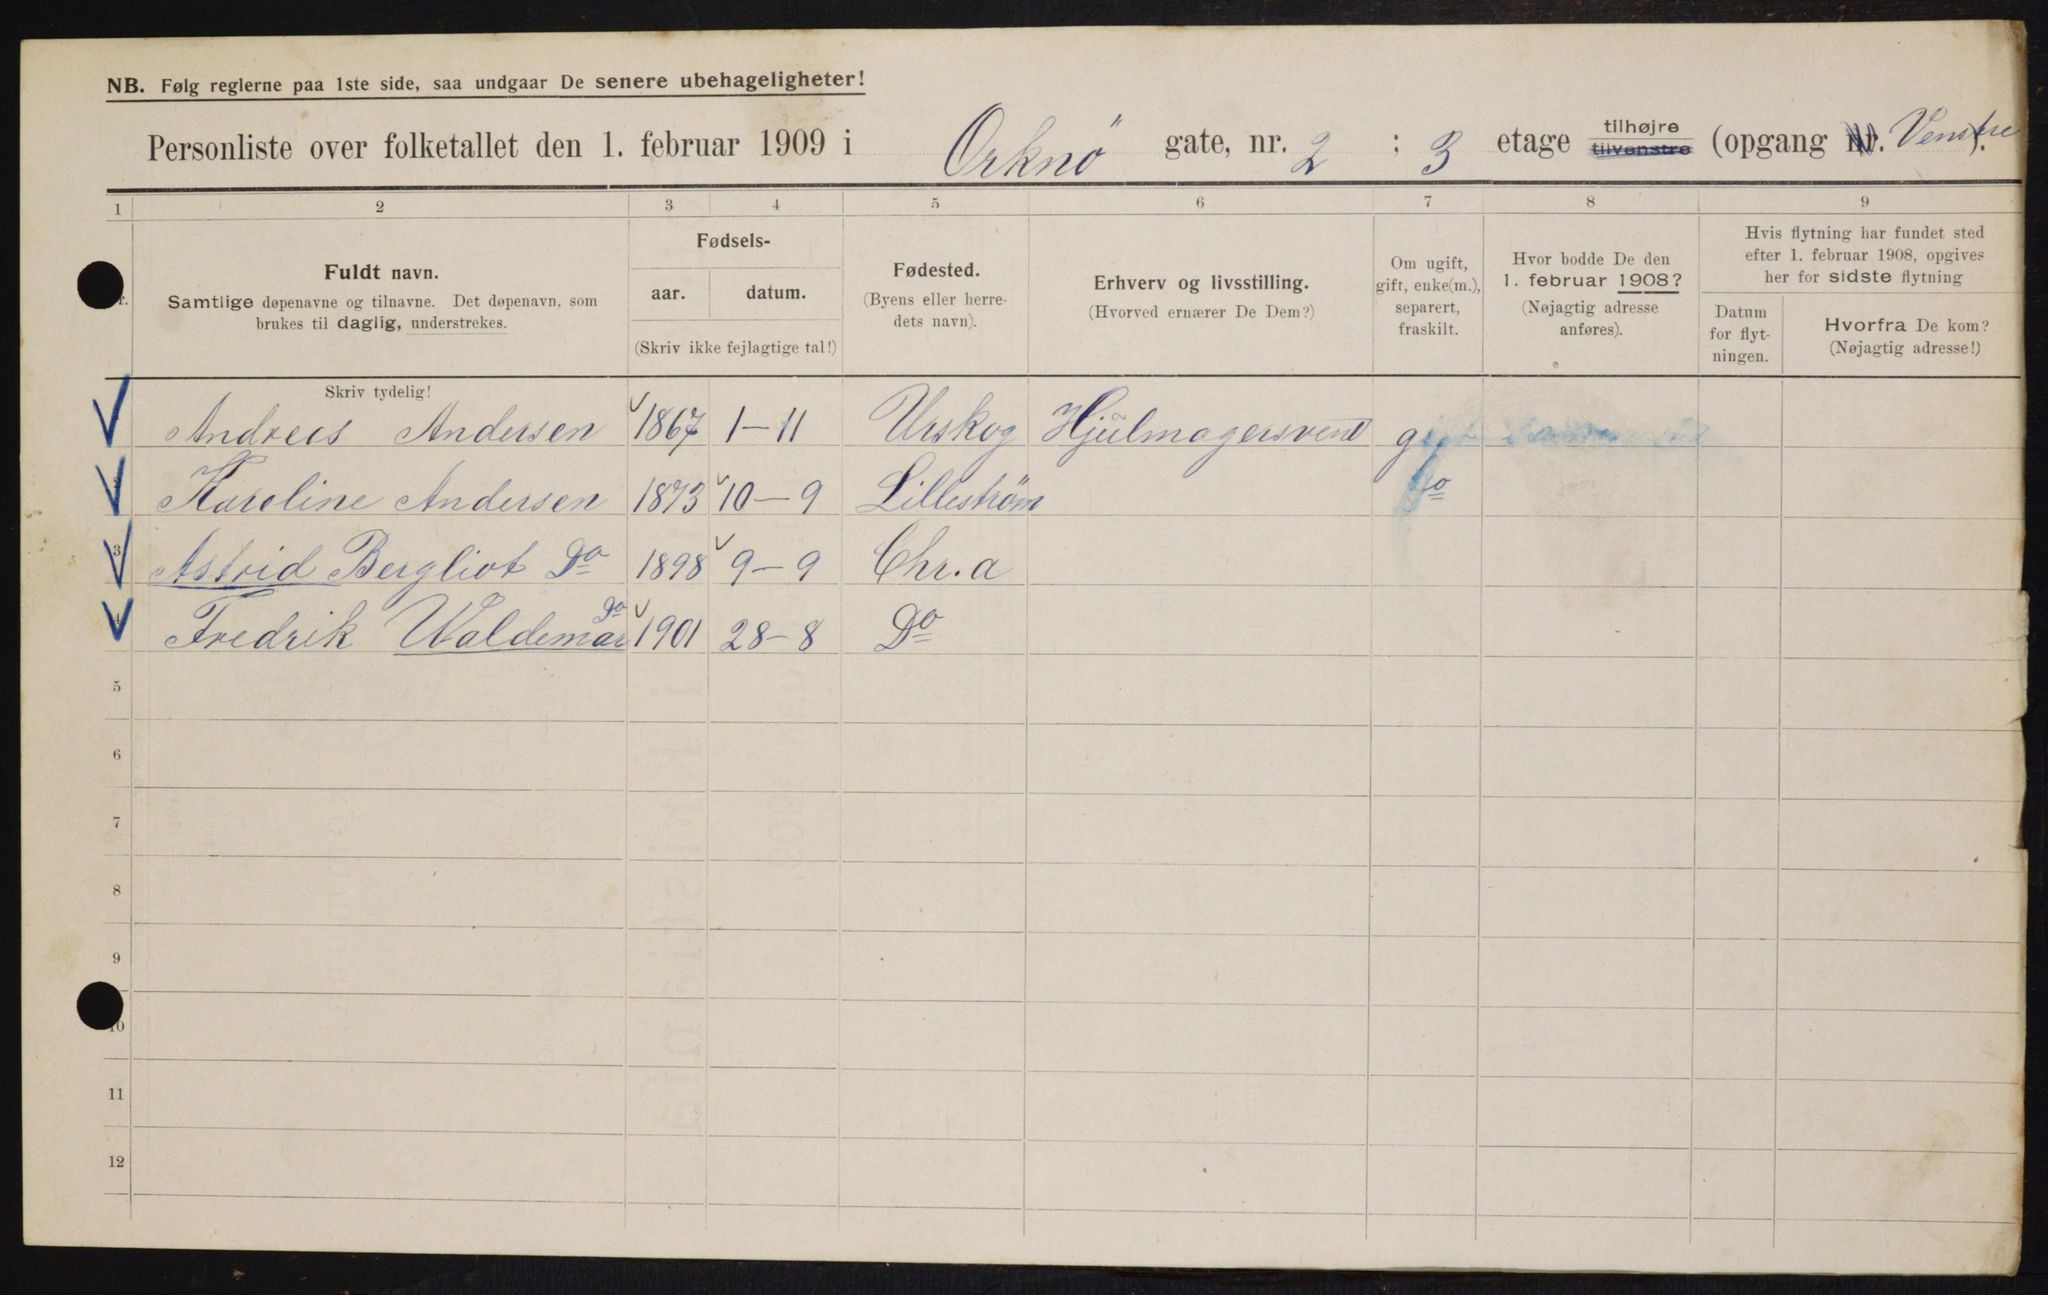 NB. Følg reglerne paa 1ste side, saa undgaar De senere ubehageligheter!
Personliste over folketallet den 1. februar 1909 i Orknö gate, nr. 2 : 3 etage tilhøjre tilvenstre (opgang Nr. Venstre).
1 2 3 4 5 6 7 8 9
Nr.
Fuldt navn.
Samtlige døpenavne og tilnavne. Det døpenavn, som
brukes til daglig, understrekes.
Skriv tydelig!
Fødsels-
aar. datum.
(Skriv ikke fejlagtige tal!)
Fødested.
(Byens eller herre-
dets navn).
Erhverv og livsstilling.
(Hvorved ernærer De Dem?)
Om ugift,
gift, enke(m.),
separert,
fraskilt.
Hvor bodde De den
1. februar 1908?
(Nøjagtig adresse
anføres).
Hvis flytning har fundet sted
efter 1. februar 1908, opgives
her for sidste flytning
Datum
for flyt-
ningen.
Hvorfra De kom?
(Nøjagtig adresse!)
Andrees Andersen 1867 1-11 Urskog Hjulmagersvend gift
2 Karoline Andersen 1873 10-9 Lilleström Do
3 Astrid Bergliot Do 1898 9-9 Chr.a
4 Fredrik Waldemar Do 1901 28-8 Do
5
6
7
8
9
10
11
12